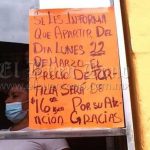 SE LES INFORMA
QUE APARTIR DEL
DIA LUNES 22
DE MARZO EL
PRECIO DE TOR
TILLA SERA DE
$16 POR SU ATE
NCION GRACIAS